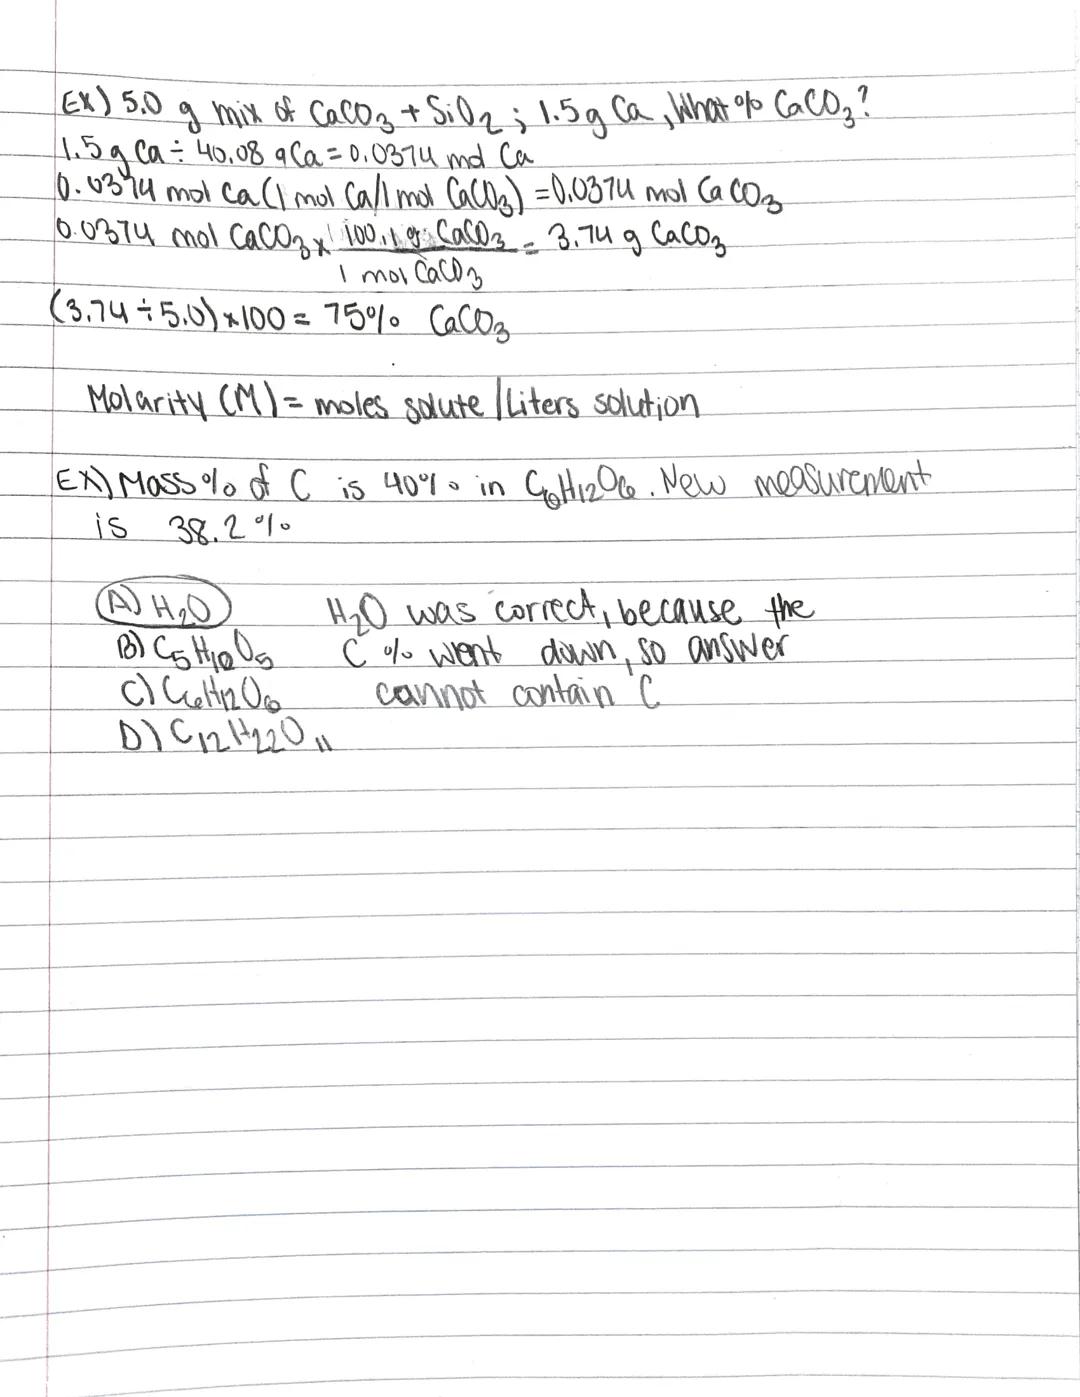 EX) 5.0 g mix of CaCO₃ + SiO₂ ; 1.5g Ca, What % CaCO₃?
1.5 g Ca ÷ 40.08 g Ca = 0.0374 mol Ca
0.0374 mol Ca (1 mol Ca/1 mol CaCO₃) = 0.0374 mol CaCO₃
0.0374 mol CaCO₃ x 100.1 g CaCO₃ = 3.74 g CaCO₃
1 mol CaCO₃
(3.74 ÷ 5.0) x 100 = 75% CaCO₃
Molarity (M) = moles solute / Liters solution
EX) Mass % of C is 40% in C₆H₁₂O₆. New measurement
is 38.2 %
A) H₂O H₂O was correct, because the
B) C₅H₁₀O₅ C % went down, so answer
C) C₆H₁₂O₆ cannot contain C
D) C₁₂H₂₂O₁₁